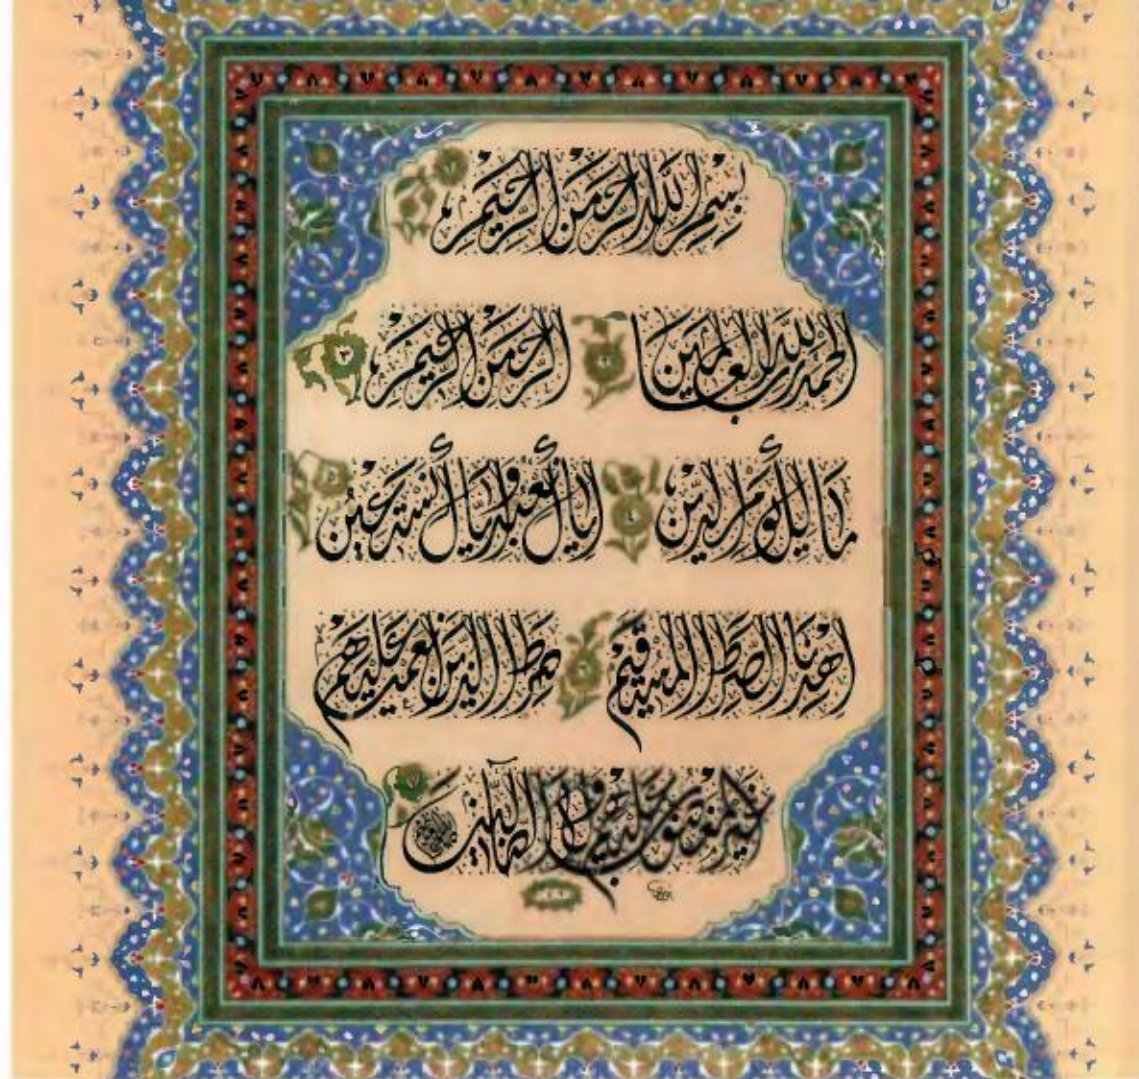 بسم الله الرحمن الرحيم ١
الحمد لله رب العالمين ٢ الرحمن الرحيم ٣
مالك يوم الدين ٤ إياك نعبد وإياك نستعين
اهدنا الصراط المستقيم صراط الذين أنعمت عليهم
غير المغضوب عليهم ولا الضالين